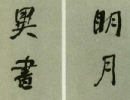 明月
異書